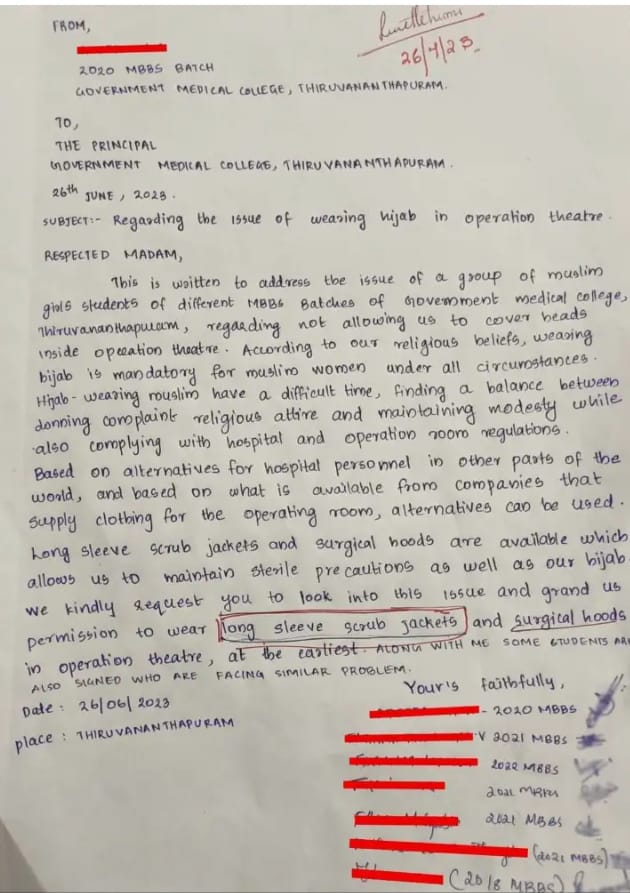 FROM,
26/7/23
2020 MBBS BATCH
GOVERNMENT MEDICAL COLLEGE, THIRUVANANTHAPURAM.
TO,
THE PRINCIPAL
GOVERNMENT MEDICAL COLLEGE, THIRUVANANTHAPURAM.
26th JUNE, 2023.
SUBJECT:- Regarding the issue of wearing hijab in operation theatre.
RESPECTED MADAM,
This is written to address the issue of a group of muslim
girls students of different MBBS Batches of Government medical college,
Thiruvananthapuram, regarding not allowing us to cover heads
inside operation theatre. According to our religious beliefs, wearing
hijab is mandatory for muslim women under all circumstances.
Hijab - wearing muslim have a difficult time, finding a balance between
donning complaint religious attire and maintaining modesty while
also complying with hospital and operation room regulations.
Based on alternatives for hospital personnel in other parts of the
world, and based on what is available from companies that
supply clothing for the operating room, alternatives can be used.
Long sleeve scrub jackets and surgical hoods are available which
allows us to maintain sterile precautions as well as our hijab.
We kindly request you to look into this issue and grand us
permission to wear long sleeve scrub jackets and surgical hoods
in operation theatre, at the earliest. ALONG WITH ME SOME STUDENTS ARE
ALSO SIGNED WHO ARE FACING SIMILAR PROBLEM.
Your's faithfully,
Date : 26/06/2023
- 2020 MBBS
place : THIRUVANANTHAPURAM
V 2021 MBBS
2022 MBBS
2021 MBBS
2021 MBBS
(2021 MBBS)
(2018 MBBS)